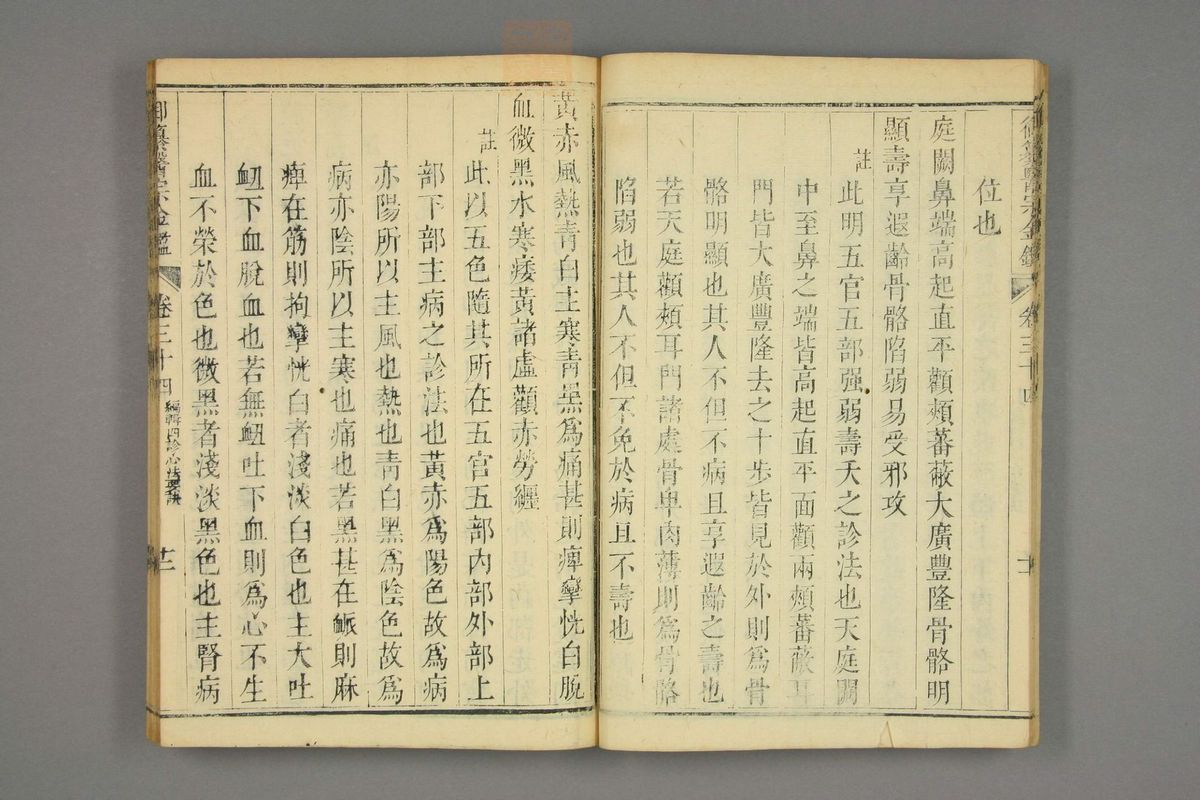 御纂醫宗金鑑 卷三十四 十一
位也
庭闕鼻端高起直平顴頰蕃蔽大廣豐隆骨骼明
顯壽享遐齡骨骼陷弱易受邪攻
註 此明五官五部强弱壽夭之診法也天庭闕
中至鼻之端皆高起直平面顴兩頰蕃蔽耳
門皆大廣豐隆去之十步皆見於外則爲骨
骼明顯也其人不但不病且享遐齡之壽也
若天庭顴頰耳門諸處骨卑肉薄則爲骨骼
陷弱也其人不但不免於病且不壽也
黃赤風熱青白主寒青黑爲痛甚則痺攣恍白脫
血微黑水寒痿黃諸虛顴赤勞纏
註 此以五色隨其所在五官五部內部外部上
部下部主病之診法也黃赤爲陽色故爲病
亦陽所以主風也熱也青白黑爲陰色故爲
病亦陰所以主寒也痛也若黑甚在脈則麻
痺在筋則拘攣恍白者淺淡白色也主大吐
衄下血脫血也若無衄吐下血則爲心不生
血不榮於色也微黑者淺淡黑色也主腎病
御纂醫宗金鑑 卷三十四 編輯四診心法要訣 十二